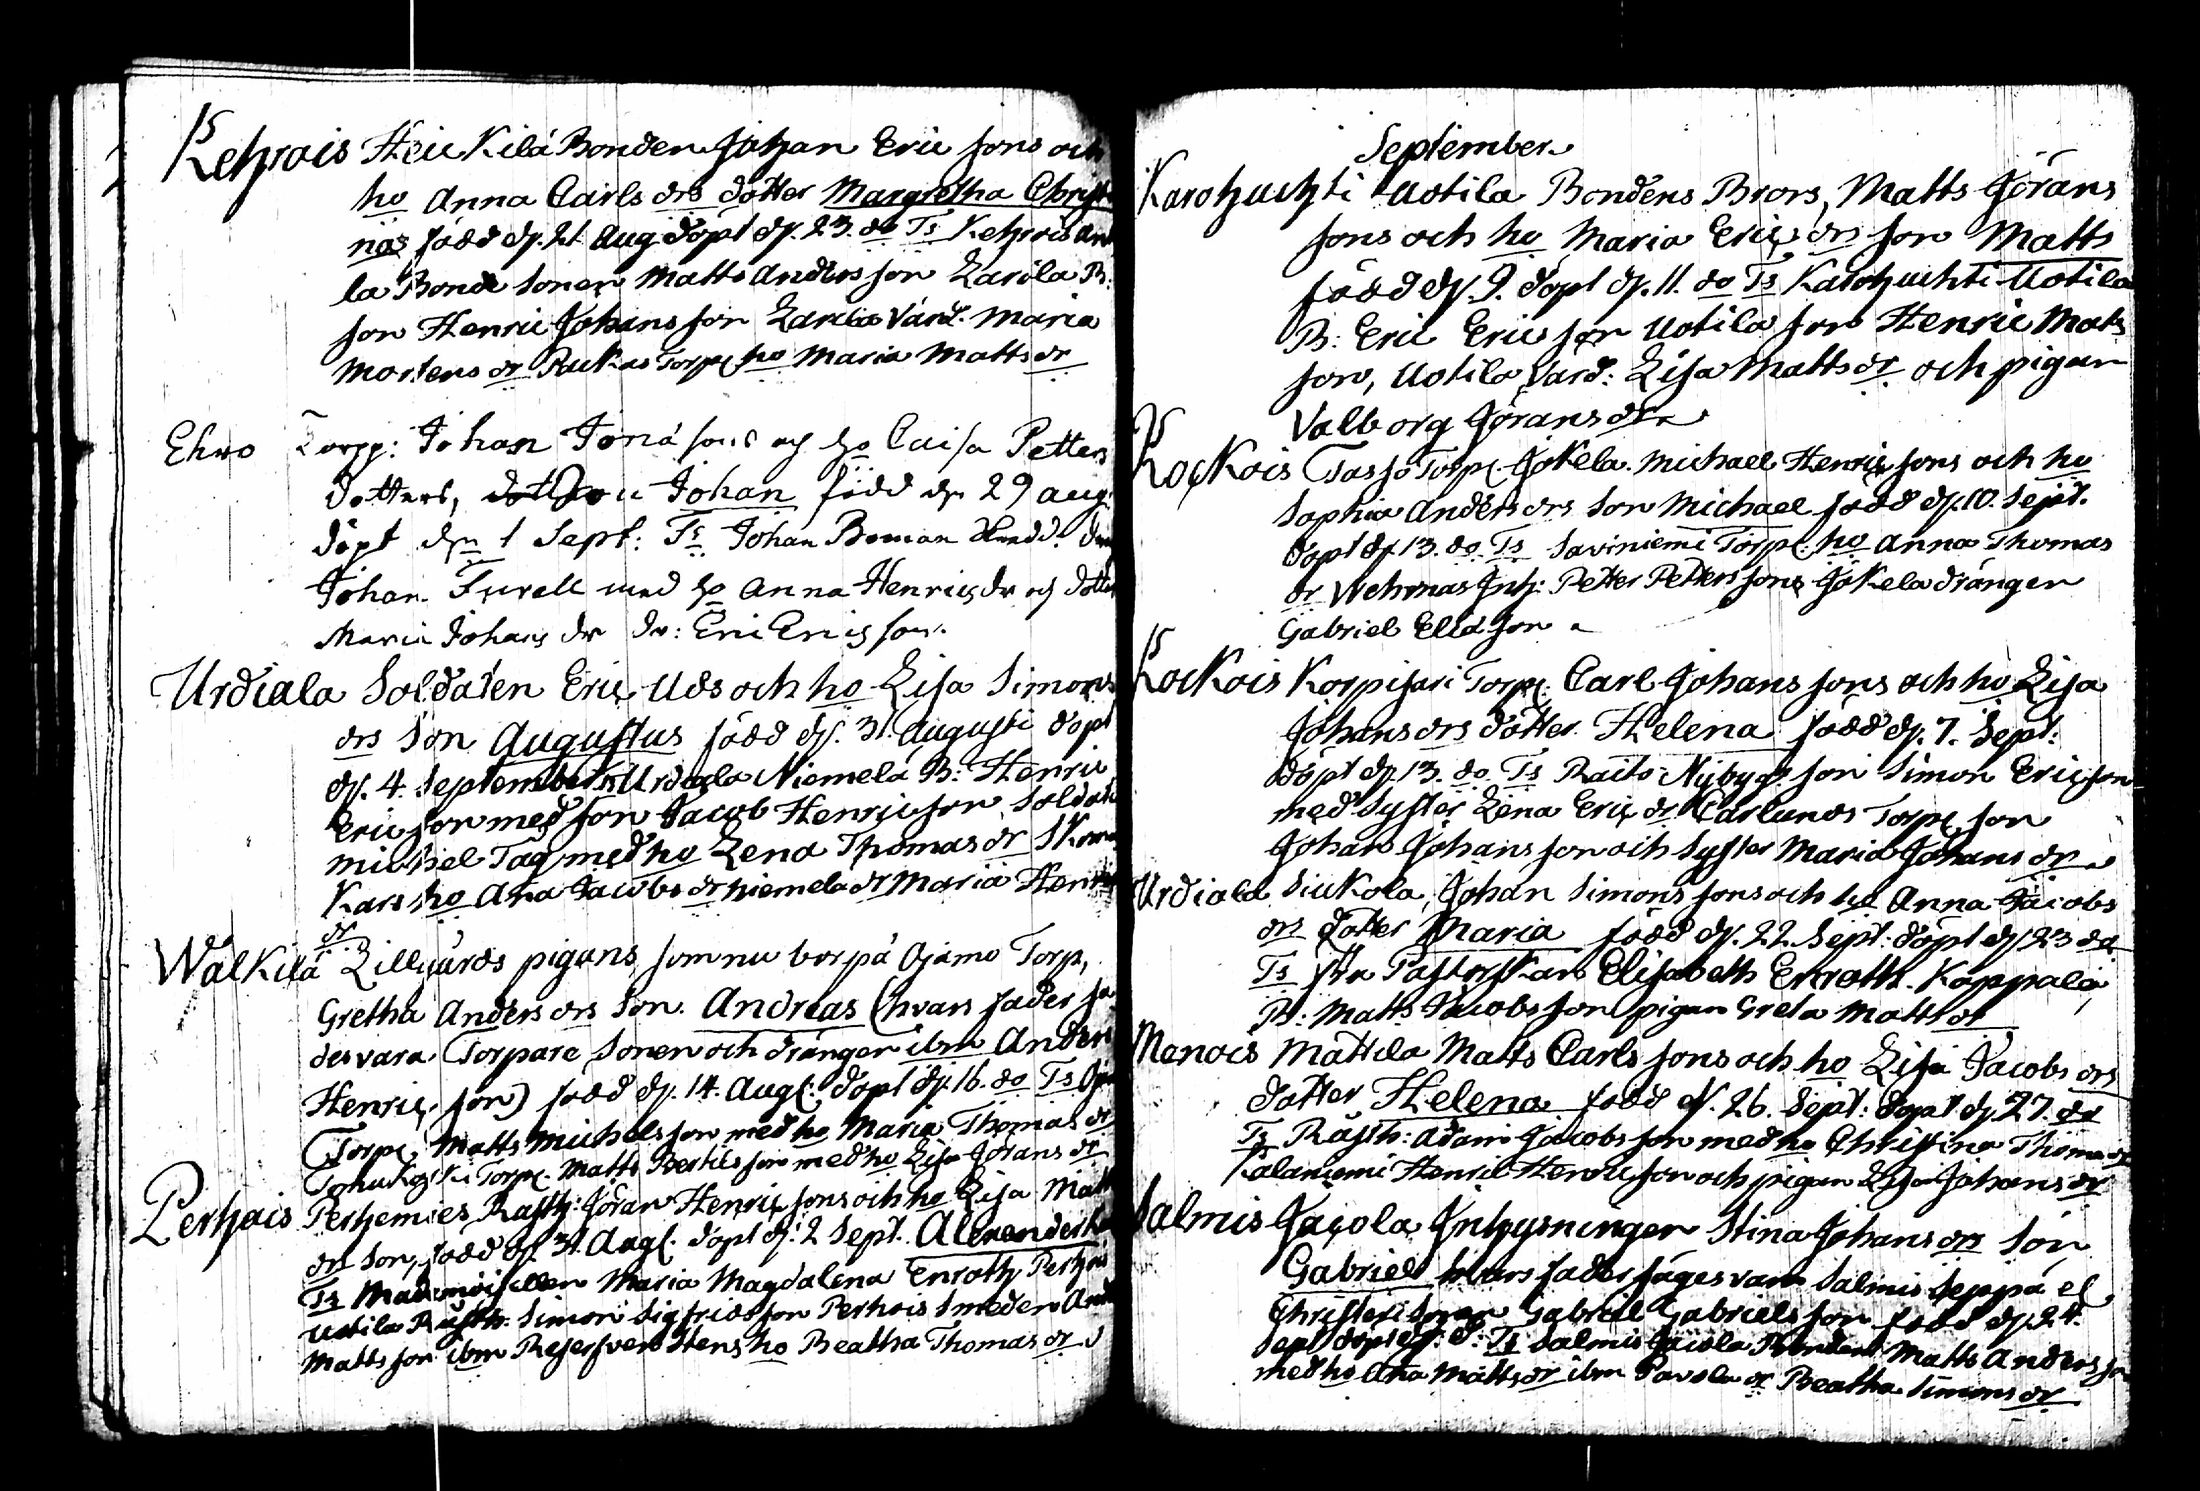 Kehrois Heickilä Bonden Johan Eric sons och
ho Anna Carls drs dotter Margretha Christi
nas född d. 21 Aug döpt d. 23. do Ts Kehrois An
la Bonde sonen Matts Anders son Zarila B:
son Henric Johans son Zarila Värd. Maria
Mortens dr Ruckas Torp. ho Maria Matts dr
Ehro Torpp: Johan Jonä sons och ho Caisa Petters
dotters, son Johan född den 29 aug:
döpt den 1 Sept: Ts Johan Boman
Johan Furell med ho Anna Henrics dr och dotter
Maria Johans dr dr: Eric Erics son.
Urdiala Soldaten Eric Uds och ho Lisa Simons
drs Son Augustus född d. 31. Augusti döpt
d. 4. September Ts Urdiala Niemelä B: Henric
Ericsson med son Jacob Henricson Soldaten
Michel Tag med ho Lena Thomas dr
Kars ho Ana Jacobs dr Niemelä dr Maria Henrics
dr
Walkila Lillgårds pigans, som nu bor på Ojamo Torp,
Gretha Anders drs Son. Andreas (hvars fader sä
des vara Torpare Sonen och drängen ibm Anders
Henrics son) född d. 14. Aug. döpt d. 16. do Ts
Torp. Matts Michels son med ho Maria Thomas dr
Torp. Matts Bertils son med ho Lisa Görans dr
Perhois Perhemies Rusth: Göran Henrics sons och ho Lisa Matts
drs Son, född d. 31. Aug. döpt d. 2 Sept. Alexander
Ts Mademoisellen Maria Magdalena Enroth Perhois
Uotila Rusth: Simon Sigfrids son Perhois Smeden And
Matts son ibm Reserven Stens ho Beatha Thomas dr
September
Karohuchti Uotila Bondens Brors, Matts Görans
sons och ho Maria Erics drs son Matts
född d. 9. döpt d. 11. do Ts Karohuchti Uotila
B: Eric Erics son Uotila son Henric Mats
son, Uotila Värd: Lisa Matts dr och pigan
Valborg Görans dr
Kockois Torp. Jokela Michael Henrics sons och ho
Sophia Anders drs Son Michael född d. 10. Sept.
döpt d. 13. do Ts Saviniemi Torp. ho Anna Thomas
dr Wehmas Inh: Petter Petters sons Jokela drängen
Gabriel Eliä son
Kockois Korpisari Torp. Carl Johans sons och ho Lisa
Johans drs dotter Helena född d. 7. Sept:
döpt d. 13. do Ts Raito Nybygg. son Simon Ericsson
med Syster Lena Erics dr Carlunds Torp. son
Johan Johans son och Syster Maria Johans dr
Urdiala Siukola, Johan Simons sons och ho Anna Jacobs
drs dotter Maria född d. 22. Sept: döpt d. 23 do
Ts Fru Pastorskan Elisabeth Enroth. Kappala
B: Matts Jacobs son pigan Greta Matts dr
Menois Mattila Matts Carls sons och ho Lisa Jacobs drs
dotter Helena född d. 26. Sept: döpt d. 27. do
Ts Rusth: Adam Jacobs son med ho Christina Thomæ dr
Kalaniemi Henric Henrics son och pigan Lisa Johans dr
Salmis Jacola Inhysningen Stina Johans drs Son
Gabriel hvars fader säges vara Salmis Seppä el.
Christers Sonen Gabriel Gabriels son född d. 24.
Sept: döpt d. Ts Salmis Jacola Bonden Matts Anders son
med ho Ana Matts dr ibm Pavola dr Beatha Simons dr